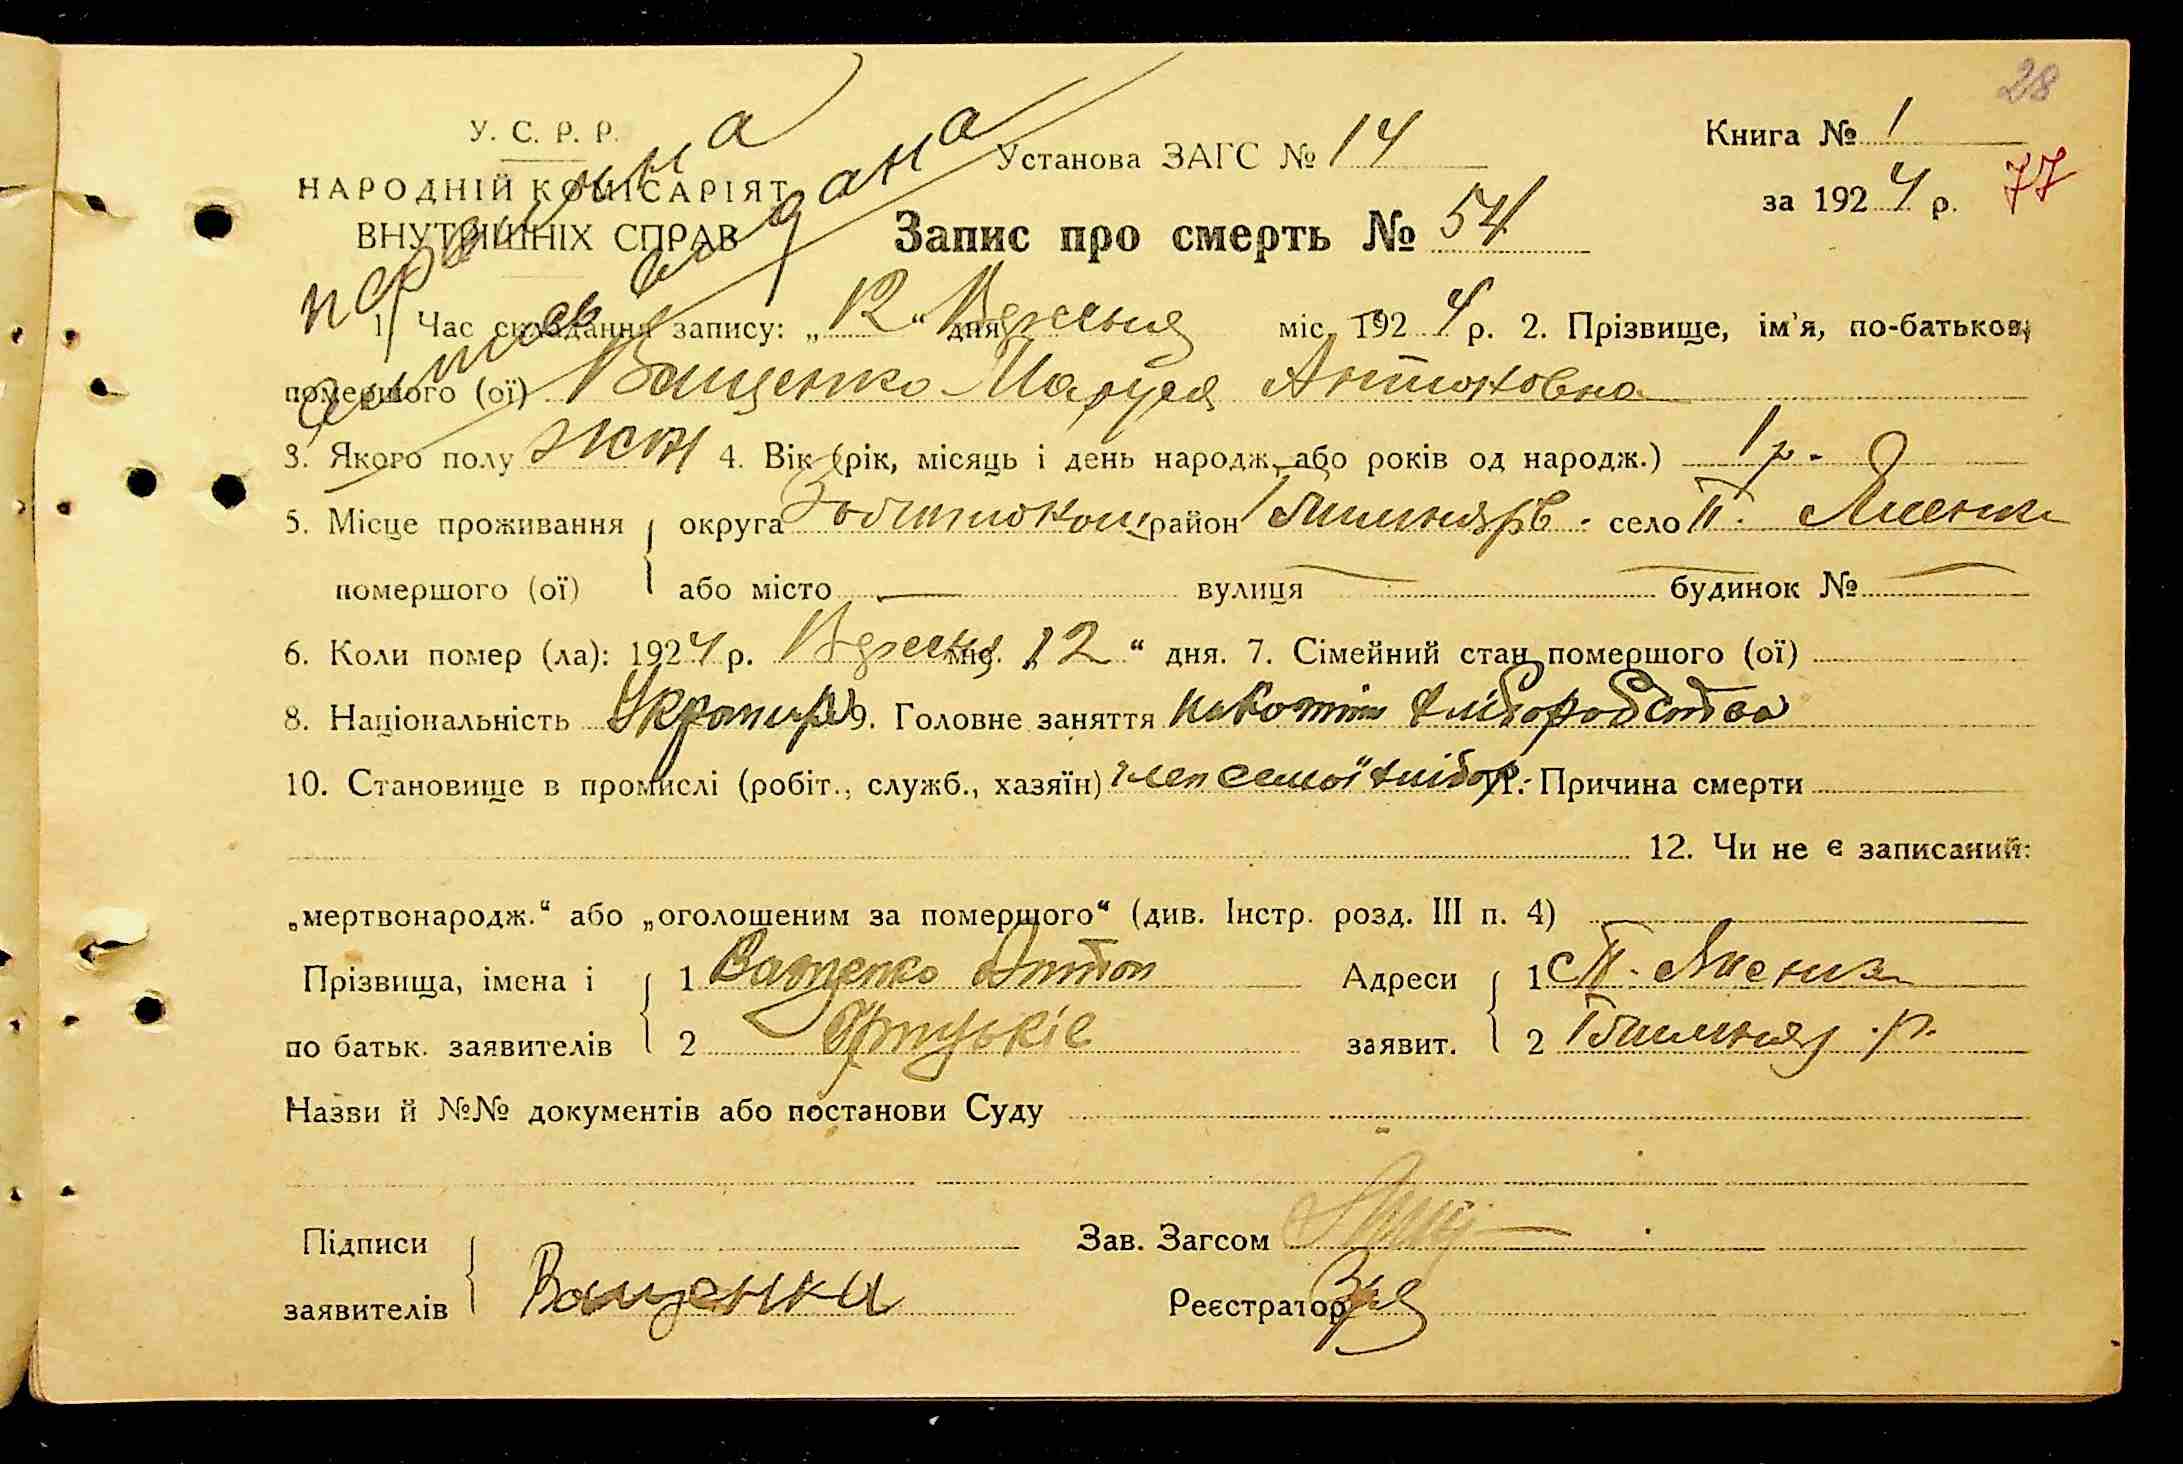 28
У. С. Р. Р.
НАРОДНІЙ КОМІСАРІЯТ
ВНУТРІШНІХ СПРАВ
Установа ЗАГС № 14
Книга № 1
за 1924 р. 77
Запис про смерть № 54
1. Час складання запису: „12“ дня Вресня міс. 1924 р. 2. Прізвище, ім'я, по-батькові
помершого (ої) Ващенко Маруся Антоновна
3. Якого полу жен 4. Вік (рік, місяць і день народж. або років од народж.) 1 р.
5. Місце проживання округа район село П.
помершого (ої) або місто — вулиця — будинок № —
6. Коли помер (ла): 1924 р. Вресня міс. 12 “ дня. 7. Сімейний стан помершого (ої)
8. Національність 9. Головне заняття хліборобства
10. Становище в промислі (робіт., служб., хазяїн) член семьї хлібор. 11. Причина смерти
12. Чи не є записаний:
„мертвонародж.“ або „оголошеним за помершого“ (див. Інстр. розд. III п. 4)
Прізвища, імена і 1 Ващенко Антон Адреси 1 с П.
по батьк. заявителів 2 заявит. 2 р.
Назви й №№ документів або постанови Суду
Підписи Зав. Загсом
заявителів Ващенко Реєстратор